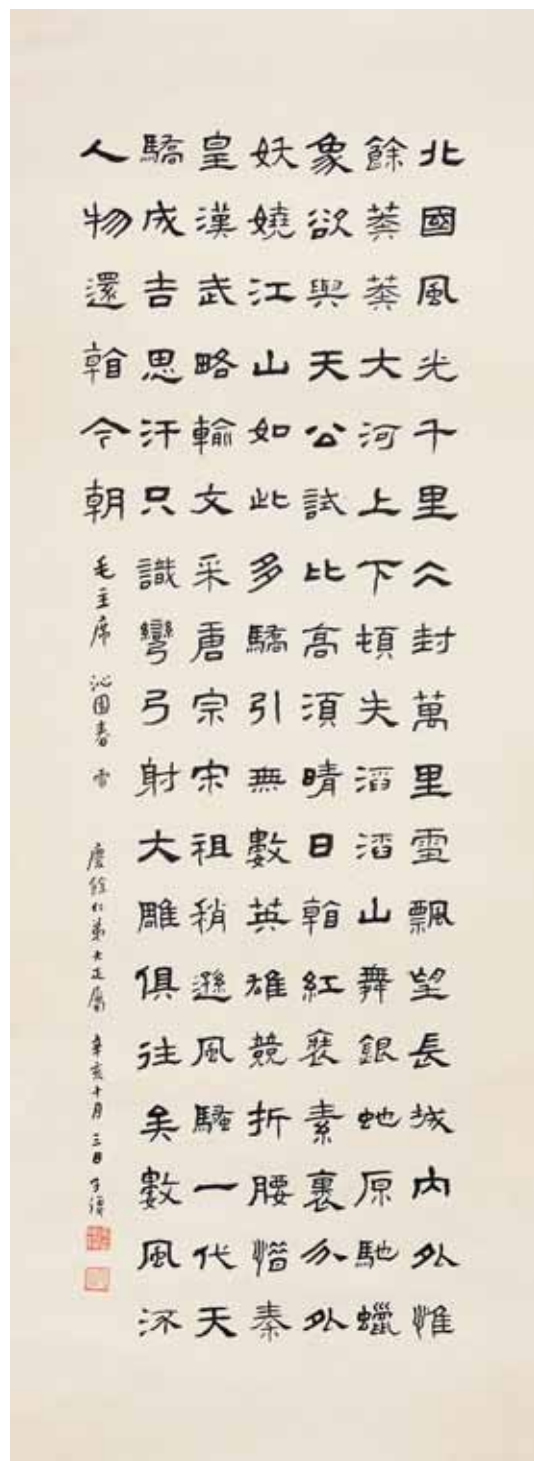 北國風光千里仌封萬里雪飄望長城内外惟
餘莽莽大河上下頓失滔滔山舞銀虵原馳蠟
象欲與天公試比高須晴日看紅裝素裹分外
妖嬈江山如此多驕引無數英雄競折腰惜秦
皇漢武略輸文采唐宗宋祖稍遜風騷一代天
驕成吉思汗只識彎弓射大雕俱往矣數風流
人物還看今朝 毛主席 沁園春 雪 慶餘仁弟大正屬 辛亥十月三日 子復